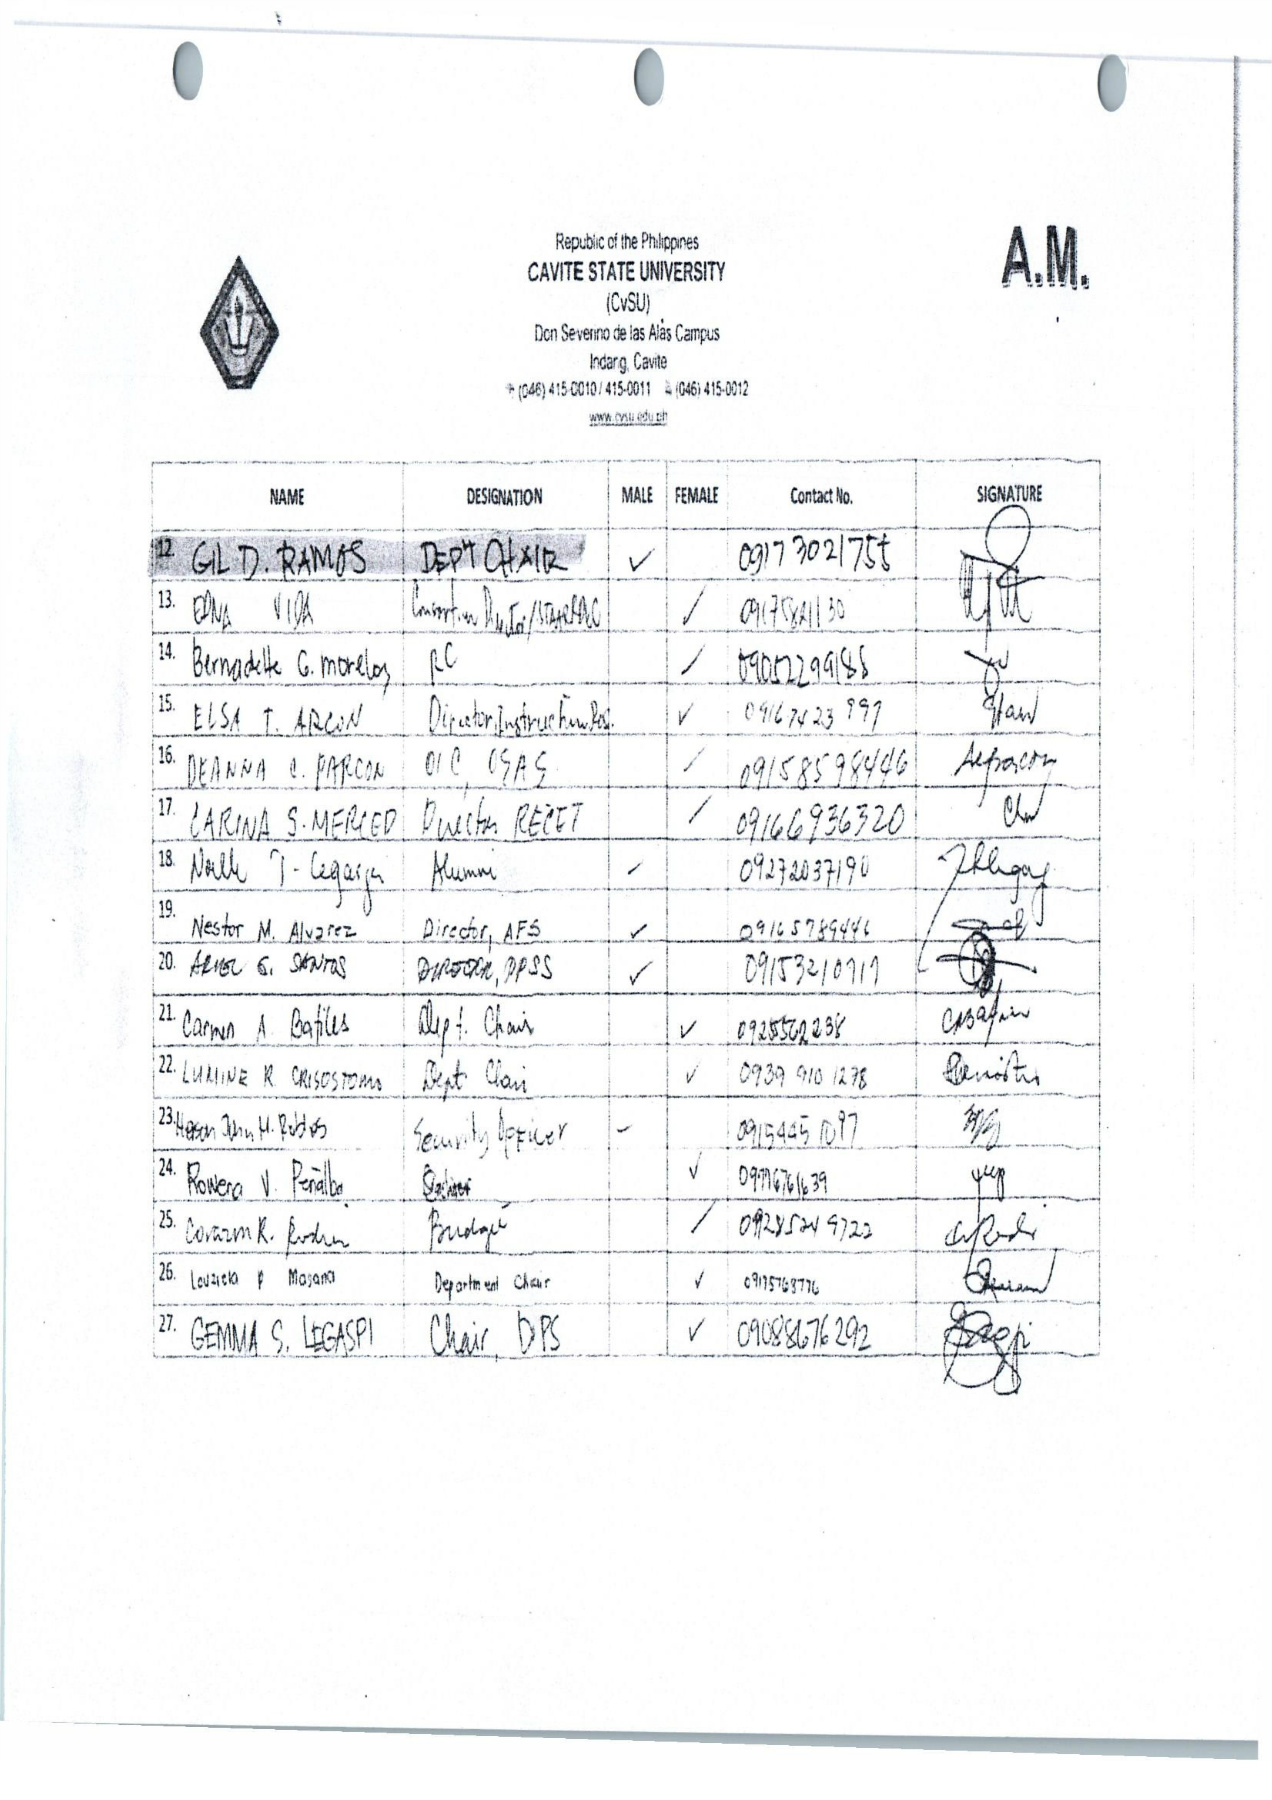 A.M.
Republic of the Philippines
CAVITE STATE UNIVERSITY
(CvSU)
Don Severino de las Alas Campus
Indang, Cavite
(046) 415-0010 / 415-0011 (046) 415-0012
www.cvsu.edu.ph
NAME DESIGNATION MALE FEMALE Contact No. SIGNATURE
12. GIL D. RAMOS DEP'T CHAIR ✓ 0917 3021755
13. EDNA VIDA
14. Bernadette G. Morelos RC 09052299188
15. ELSA T. ARCON Director, Instruction ✓
16. DEANNA C. PARCON OIC, OSAS 09158598446
17. CARINA S. MERCED Director RECET 09166936320
18. T. Alumni 09272037190
19. Nestor M. Alvarez Director, AFS ✓ 09165789446
20. ARIEL G. SANTOS DIRECTOR, PPSS ✓ 09153210717
21. Carmen A. Batiles Dept. Chair ✓ 0925562238
22. LUMINE R. CRISOSTOMO Dept Chair ✓ 0939 910 1278
23. Security Officer 0915445 1097
24. Rowena V. Peñalba ✓
25. Corazon R. Budget 09285249722
26. P Masana Department Chair ✓ 09175768776
27. GEMMA S. LEGASPI Chair, DPS ✓ 09088676292